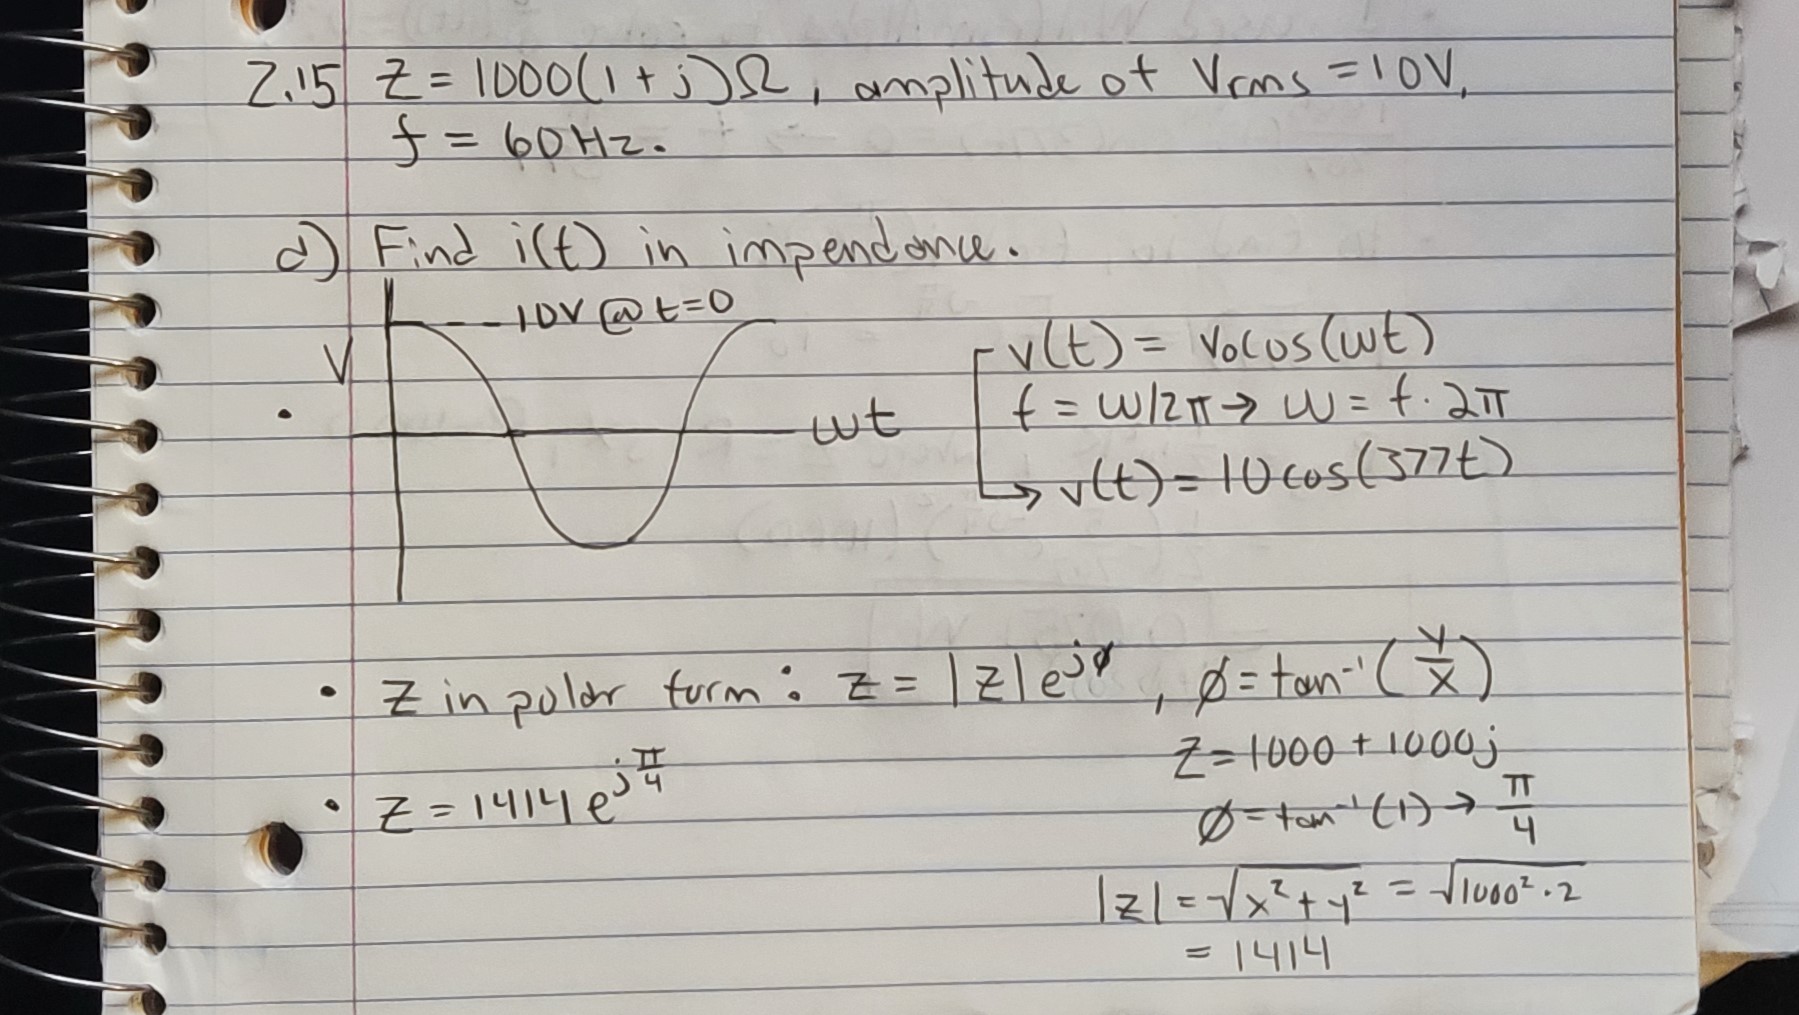 2.15 Z = 1000(1 + j)Ω, amplitude of Vrms = 10V,
f = 60Hz.
a) Find i(t) in impendance.
10V @ t=0
V
ωt
v(t) = V₀cos(ωt)
f = ω/2π → ω = f · 2π
→ v(t) = 10cos(377t)
• Z in polar form: Z = |Z|e^{jø}, ø = tan⁻¹(y/x)
Z = 1000 + 1000j
• Z = 1414 e^{jπ/4}
ø = tan⁻¹(1) → π/4
|Z| = √(x² + y²) = √(1000² · 2)
= 1414